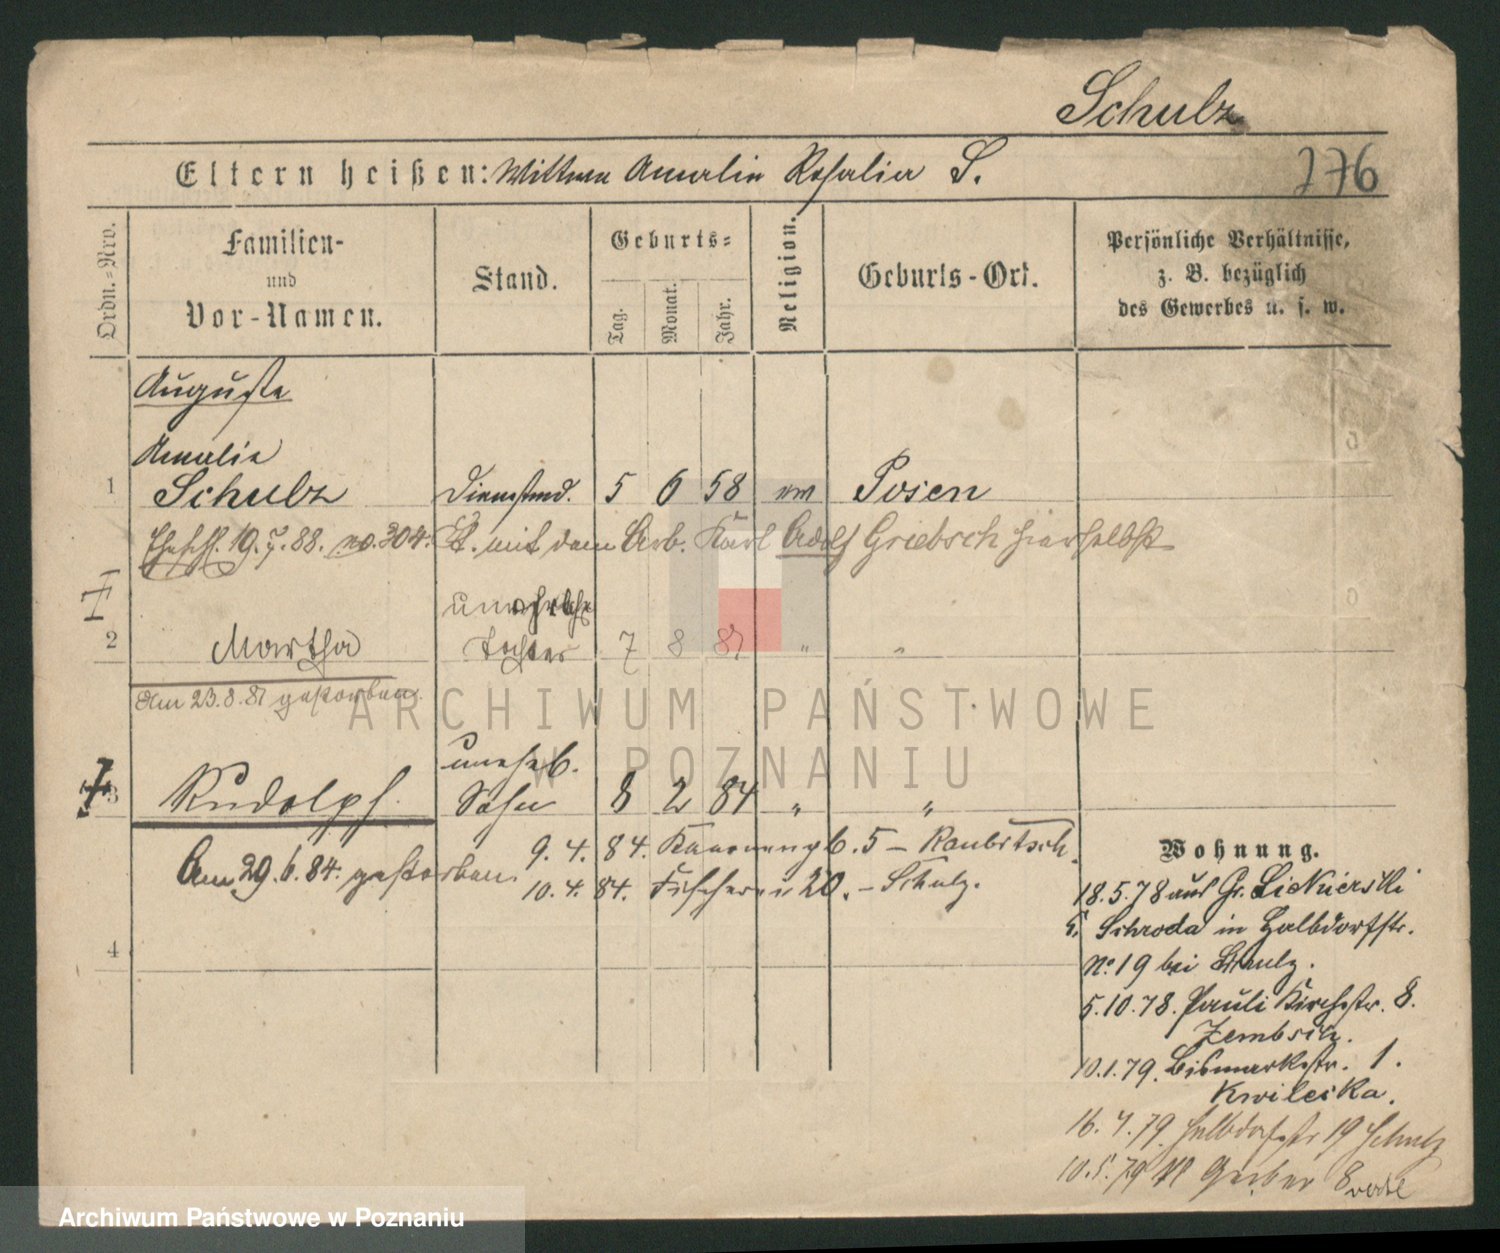 Schulz
Eltern heißen: Wittwe Amalie Rosalie S.
276
Ordn.-Nro.
Familien-
und
Vor-Namen.
Stand.
Geburts-
Tag.
Monat.
Jahr.
Religion.
Geburts-Ort.
Persönliche Verhältnisse,
z. B. bezüglich
des Gewerbes u. s. w.
Auguste
Amalie
1 Schulz Dienstmd. 5 6 58 ev Posen
Ehesch. 19.7.88. no. 304. mit dem Arb. Karl Adolf Griebsch hierselbst
unehelche
2 Martha Tochter 7 8 81 " "
Am 23.8.81 gestorben.
uneheb.
3 Rudolph Sohn 8 2 84 " "
Am 29.6.84. gestorben.
9.4.84. 5 – Raubitsch.
10.4.84. Fischerei 20. – Schulz.
4
Wohnung.
18.5.78 aus Gr.
Schroda in Halbdorfstr.
No. 19 bei Schulz.
5.10.78. Pauli Kirchstr. 8.
Zembsch.
10.1.79. Bismarkstr. 1.
Kwileska.
16.4.79. Halbdorfstr 19 Schulz
10.5.79 Gerber
ARCHIWUM PAŃSTWOWE
W POZNANIU
Archiwum Państwowe w Poznaniu